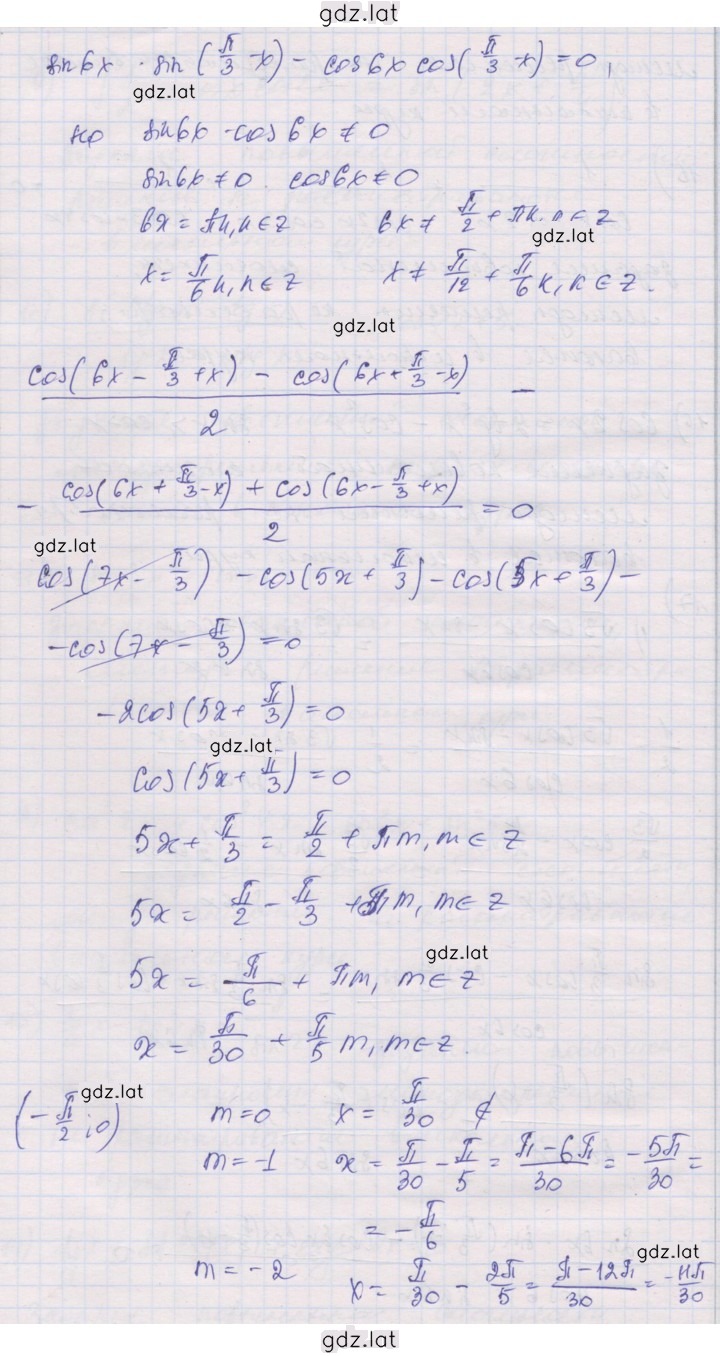 gdz.lat
sin6x · sin(π/3 -x) - cos6x cos(π/3 -x) = 0,
gdz.lat
но sin6x · cos6x ≠ 0
sin6x ≠ 0. cos6x ≠ 0
6x = πn, n ∈ Z 6x ≠ π/2 + πk. n ∈ Z
gdz.lat
x = π/6 n, n ∈ Z x ≠ π/12 + π/6 k, k ∈ Z.
gdz.lat
(cos(6x - π/3 + x) - cos(6x + π/3 - x))/2 -
- (cos(6x + π/3 - x) + cos(6x - π/3 + x))/2 = 0
gdz.lat
cos(7x - π/3) - cos(5x + π/3) - cos(5x + π/3) -
- cos(7x - π/3) = 0
-2cos(5x + π/3) = 0
gdz.lat
cos(5x + π/3) = 0
5x + π/3 = π/2 + πm, m ∈ Z
5x = π/2 - π/3 + πm, m ∈ Z
gdz.lat
5x = π/6 + πm, m ∈ Z
x = π/30 + π/5 m, m ∈ Z.
gdz.lat
(-π/2; 0) m = 0 x = π/30 ∉
m = -1 x = π/30 - π/5 = (π - 6π)/30 = -5π/30 =
= -π/6
gdz.lat
m = -2 x = π/30 - 2π/5 = (π - 12π)/30 = -11π/30
gdz.lat